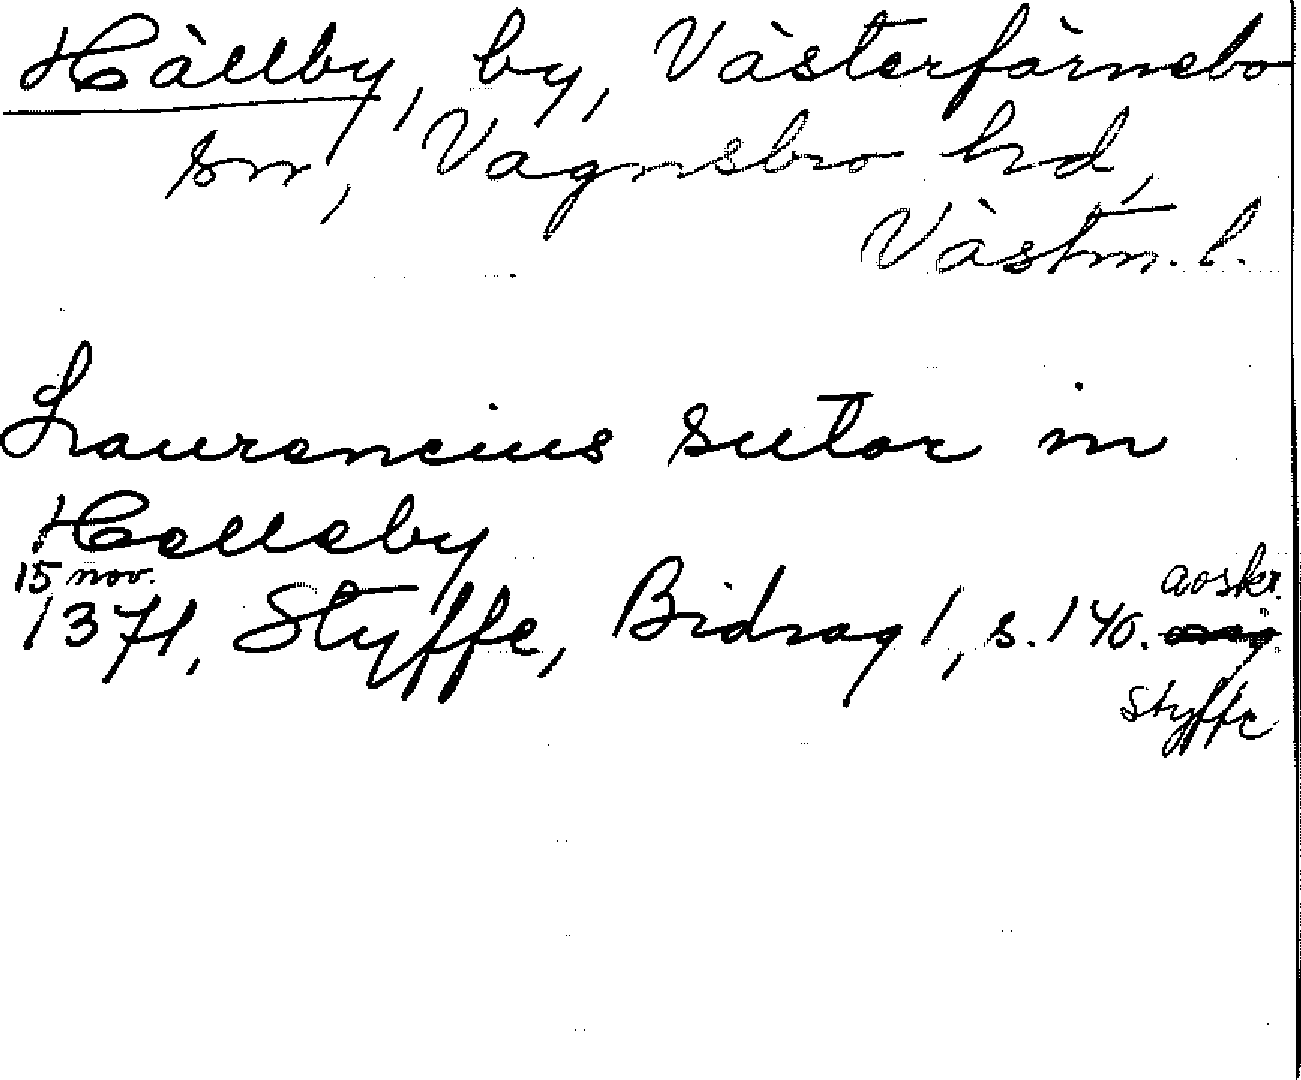 Hällby, by, Västerfärnebo
sn, Vagnsbro hd,
Västm. l.
Laurencius sutor in
Helleby
15 nov. avskr.
1371, Styffe, Bidrag 1, s. 140.
Styffe